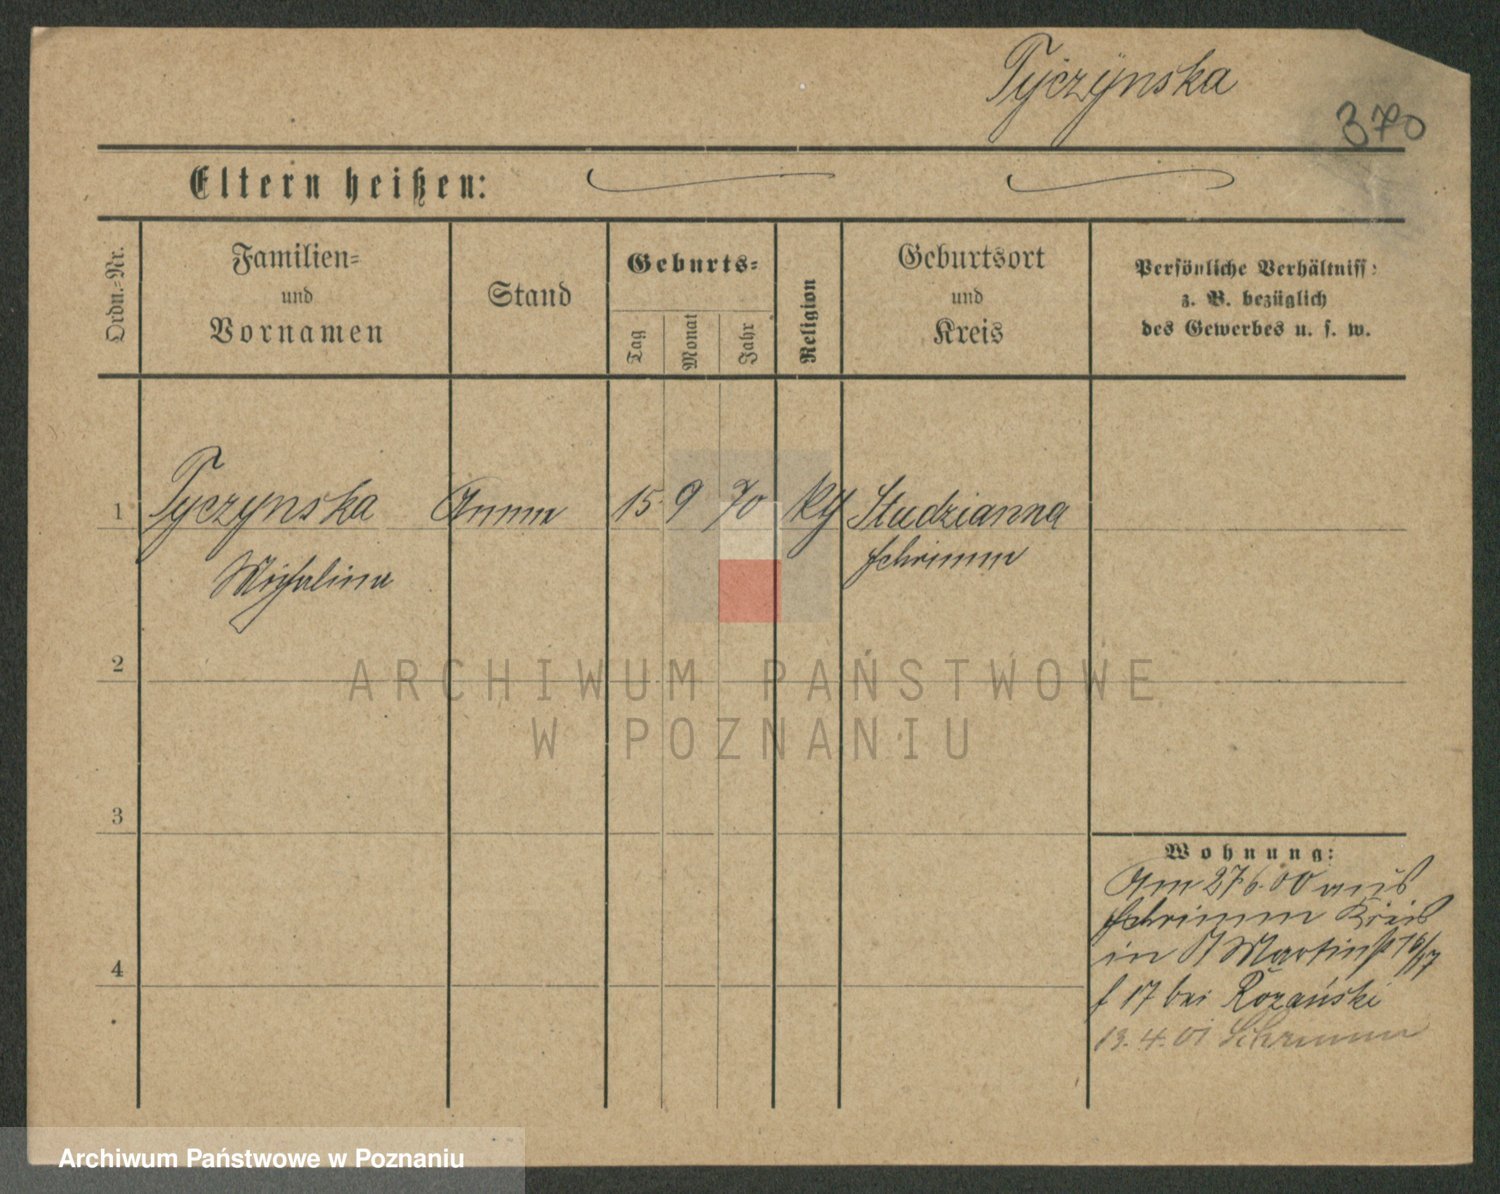 Tyczynska
370
Eltern heißen:
Ordn.-Nr.
Familien-
und
Vornamen
Stand
Geburts-
Tag
Monat
Jahr
Religion
Geburtsort
und
Kreis
Persönliche Verhältniss:
z. B. bezüglich
des Gewerbes u. s. w.
1 Tyczynska Amme 15. 9 70 Studzianna
Michalina Schrimm
2
3
4
ARCHIWUM PAŃSTWOWE
W POZNANIU
Wohnung:
Am 27.6.00 aus
Schrimm Kreis
in St Martinst 16/17
17 bei Rozański
19.4.01 Schrimm
Archiwum Państwowe w Poznaniu